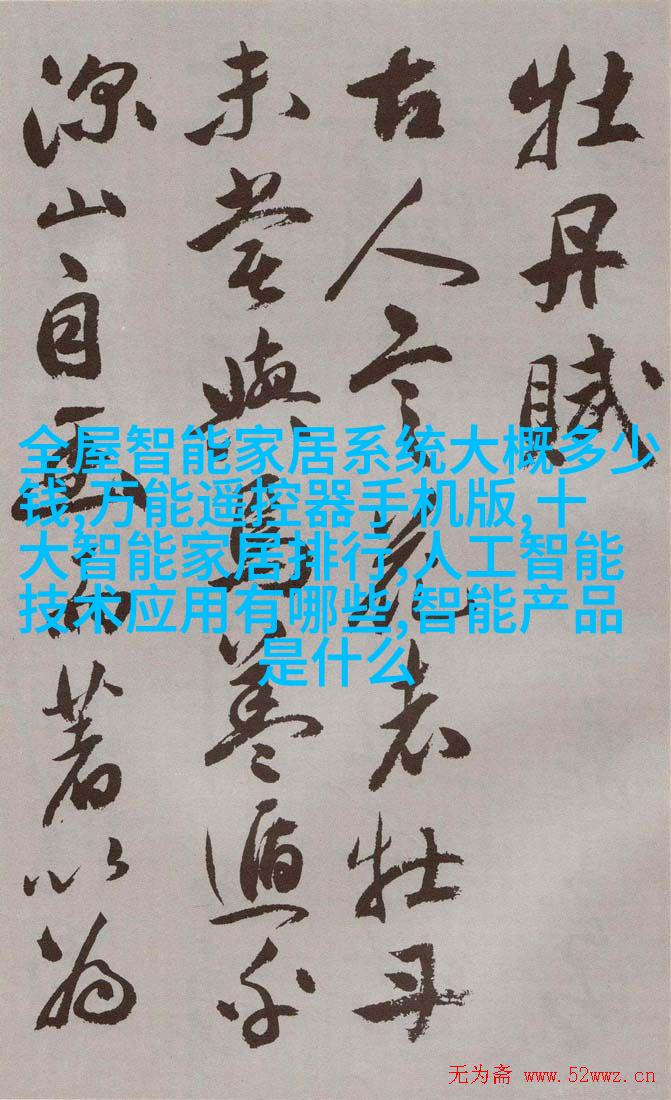 牡丹賦
古人言花者牡丹
未嘗與焉蓋遁乎
深山自幽而著以為
全屋智能家居系统大概多少
钱,万能遥控器手机版,十
大智能家居排行,人工智能
技术应用有哪些,智能产品
是什么
无为斋 www.52wwz.cn